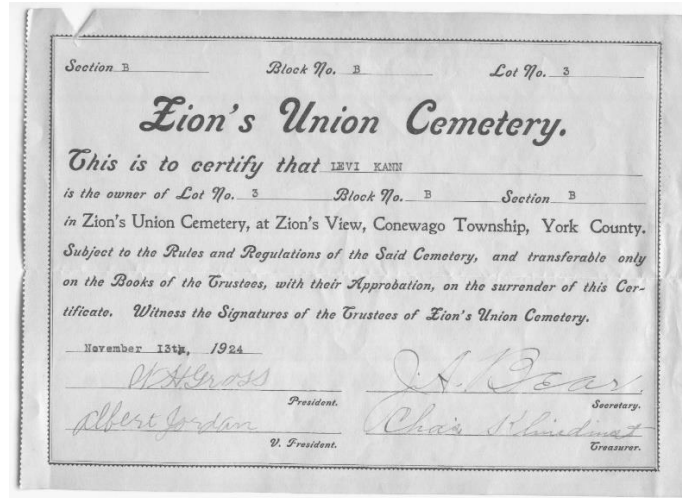 Section B Block No. B Lot No. 3
Zion's Union Cemetery.
This is to certify that LEVI KANN
is the owner of Lot No. 3 Block No. B Section B
in Zion's Union Cemetery, at Zion's View, Conewago Township, York County.
Subject to the Rules and Regulations of the Said Cemetery, and transferable only
on the Books of the Trustees, with their Approbation, on the surrender of this Cer-
tificate. Witness the Signatures of the Trustees of Zion's Union Cemetery.
November 13th, 1924
Gross J. A. Bear.
President. Secretary.
Albert Jordan Chas Klinedinst
V. President. Treasurer.